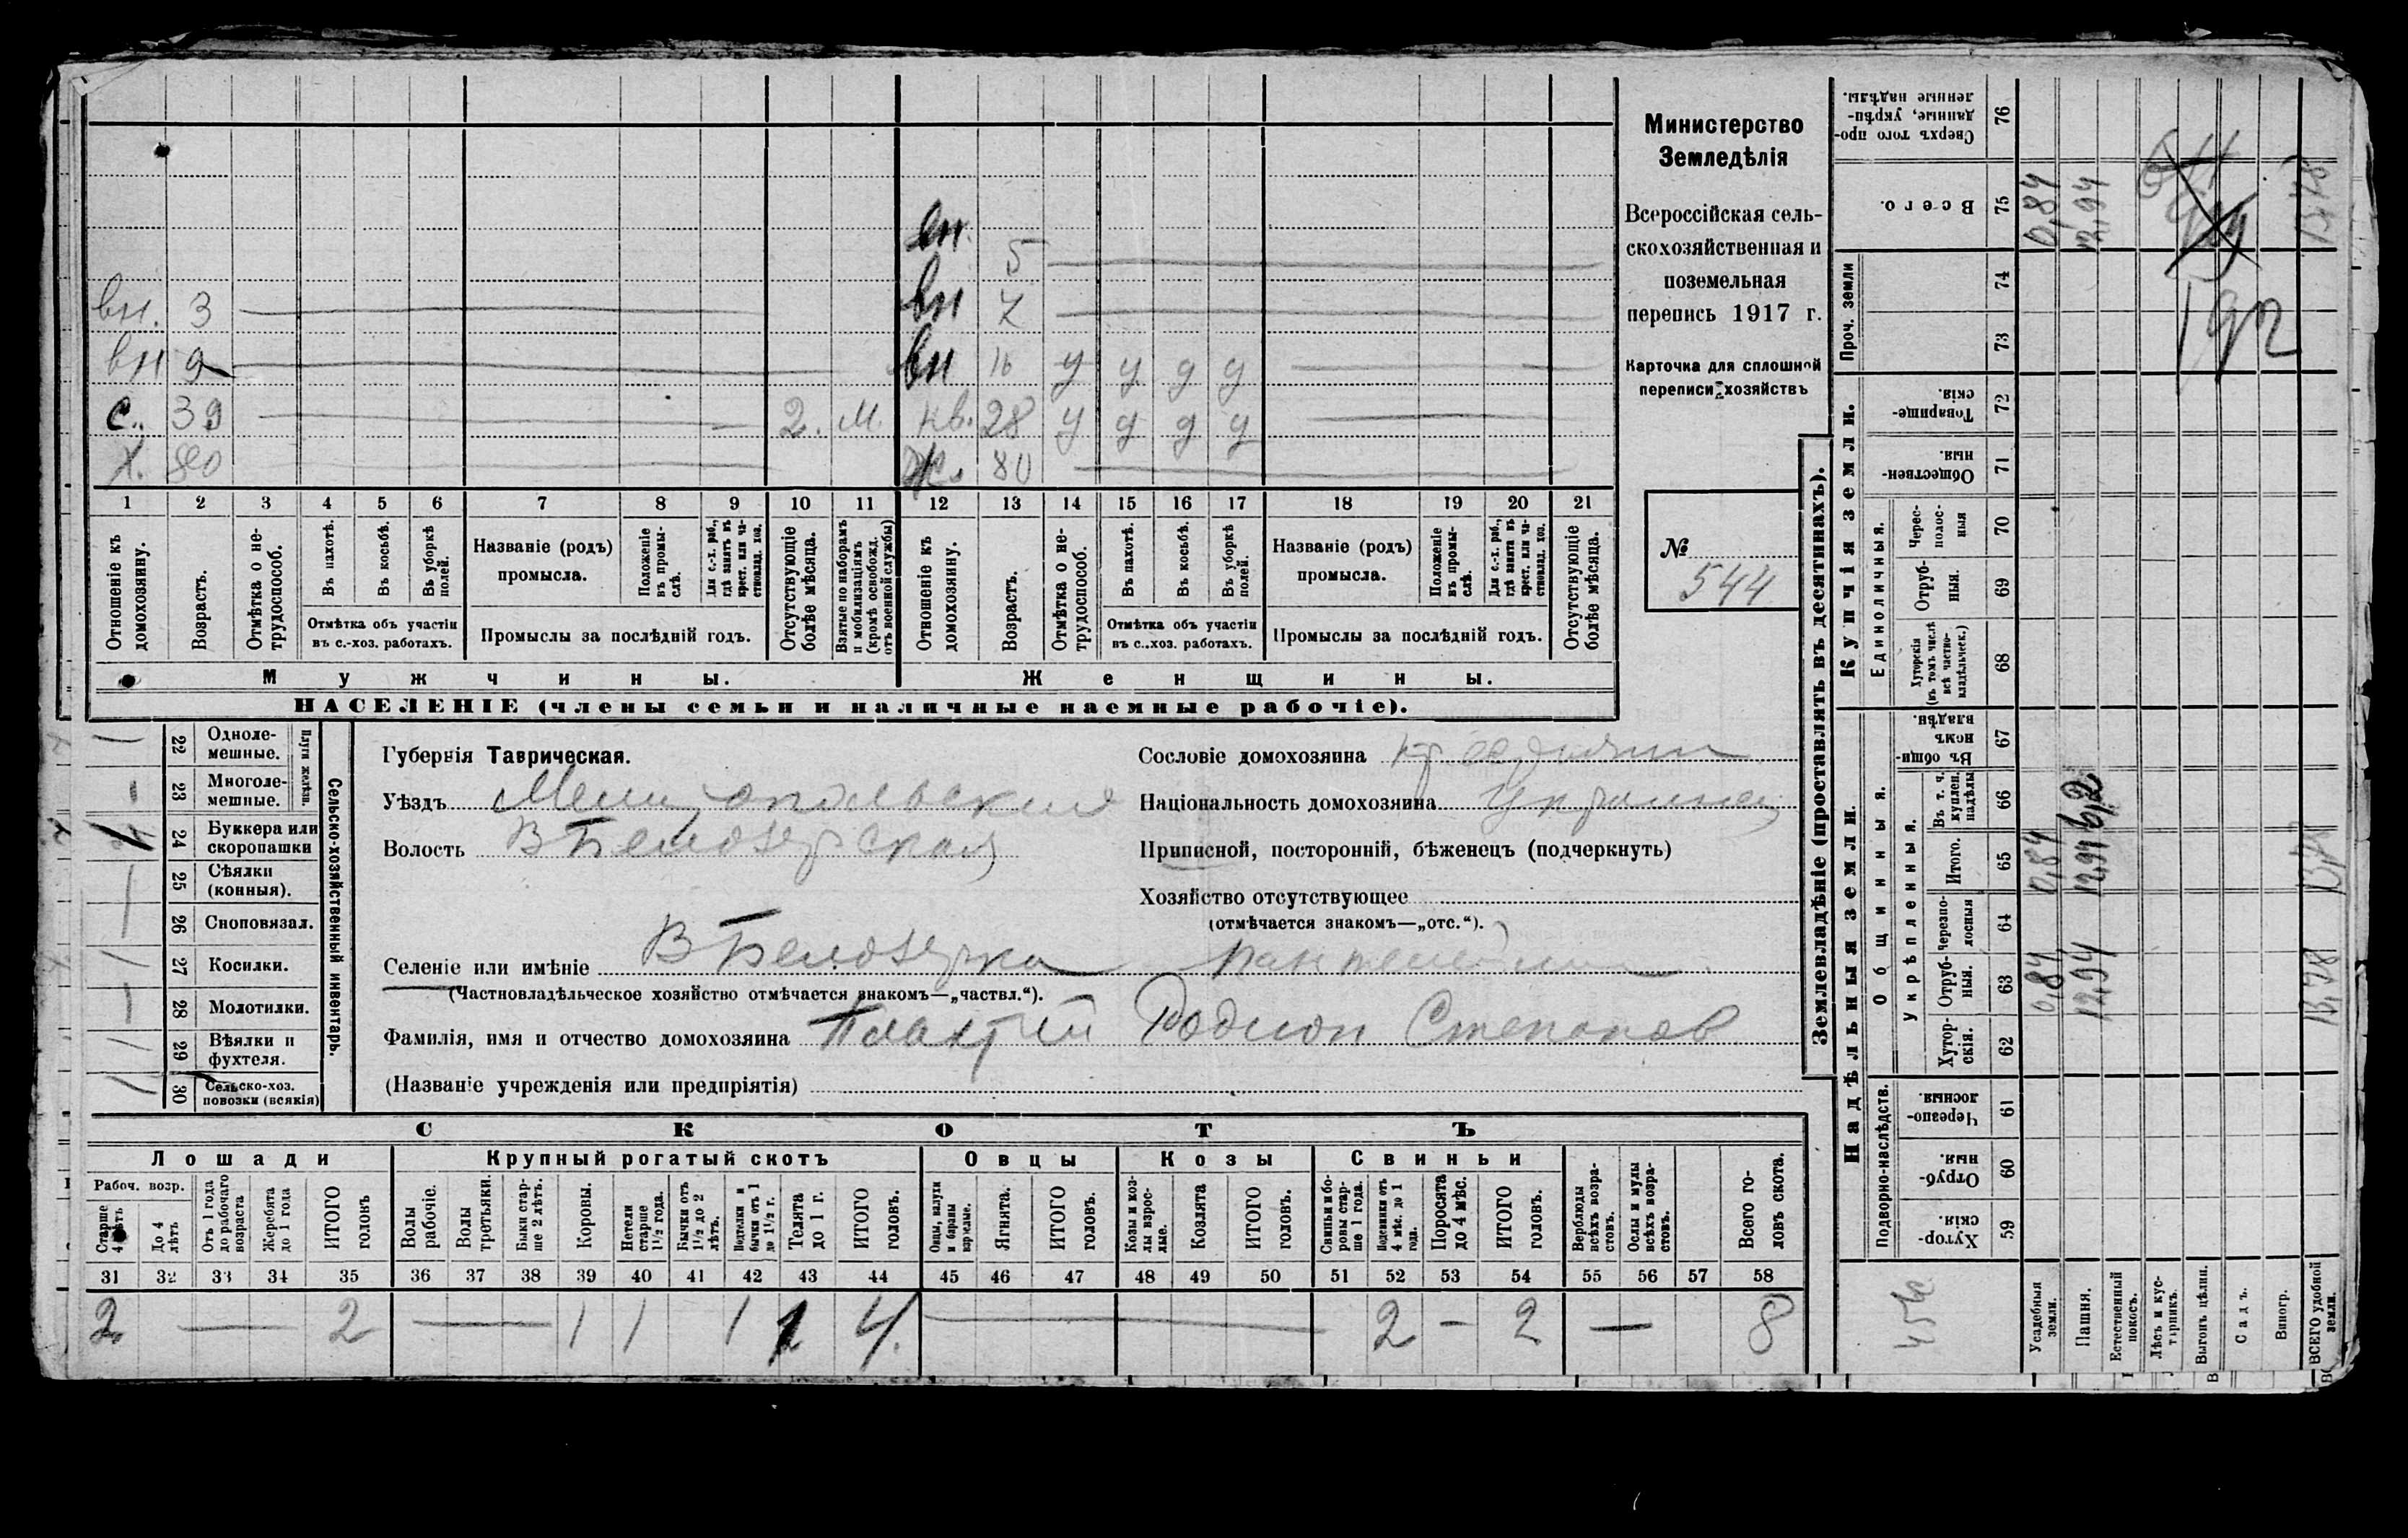 вн.
5
вн. 3
вн 7
вн 9
вн 16 у у д у
с. 39 2. м.
нв. 28 у д д у
х. 80
ж. 80
1 2 3 4 5 6 7 8 9 10 11 12 13 14 15 16 17 18 19 20 21
Отношеніе къ домохозяину.
Возрастъ.
Отмѣтка о не-трудоспособ.
Въ пахотѣ.
Въ косьбѣ.
Въ уборкѣ полей.
Отмѣтка объ участіи
въ с.-хоз. работахъ.
Названіе (родъ)
промысла.
Положеніе въ промы-слѣ.
Для с.-х. раб., гдѣ занятъ въ крест. или ча-стновлад. хоз.
Промыслы за послѣдній годъ.
Отсутствующіе болѣе мѣсяца.
Взятые по наборамъ и мобилизаціямъ (кромѣ освобожд. отъ военной службы)
Отношеніе къ домохозяину.
Возрастъ.
Отмѣтка о не-трудоспособ.
Въ пахотѣ.
Въ косьбѣ.
Въ уборкѣ полей.
Отмѣтка объ участіи
въ с.-хоз. работахъ.
Названіе (родъ)
промысла.
Положеніе въ промы-слѣ.
Для с.-х. раб., гдѣ занята въ крест. или ча-стновлад. хоз.
Промыслы за послѣдній годъ.
Отсутствующіе болѣе мѣсяца.
Мужчины.
Женщины.
НАСЕЛЕНІЕ (члены семьи и наличные наемные рабочіе).
Министерство
Земледѣлія
Всероссійская сель-
скохозяйственная и
поземельная
перепись 1917 г.
Карточка для сплошной
переписи хозяйствъ
№
544
22 Одноле-мешные.
23 Многоле-мешные.
Плуги желѣзн.
24 Буккера или скоропашки
25 Сѣялки (конныя).
26 Сноповязал.
27 Косилки.
28 Молотилки.
29 Вѣялки и фухтеля.
30 Сельско-хоз. повозки (всякія)
Сельско-хозяйственный инвентарь.
Губернія Таврическая.
Уѣздъ Мелитопольский
Волость В Белозерская
Сословіе домохозяина крестянин
Національность домохозяина Украинец
Приписной, посторонній, бѣженецъ (подчеркнуть)
Хозяйство отсутствующее
(отмѣчается знакомъ—„отс.“).
Селеніе или имѣніе В Белозерка
(Частновладѣльческое хозяйство отмѣчается знакомъ—„частвл.“).
Фамилія, имя и отчество домохозяина Плахтий Родион Степанов
(Названіе учрежденія или предпріятія)
СКОТЪ
Лошади
Крупный рогатый скотъ
Овцы
Козы
Свиньи
Рабоч. возр.
Старше 4 лѣтъ
До 4 лѣтъ
Отъ 1 года до рабочаго возраста
Жеребята до 1 года
ИТОГО головъ
Волы рабочіе.
Волы третьяки.
Быки стар-ше 2 лѣтъ.
Коровы.
Нетели старше 1½ года.
Бычки отъ 1½ до 2 лѣтъ.
Подтелки и бычки отъ 1 до 1½ г.
Телята до 1 г.
ИТОГО головъ.
Овцы, валухи и бараны взрослые.
Ягнята.
ИТОГО головъ.
Козы и коз-лы взрос-лые.
Козлята
ИТОГО головъ.
Свиньи и бо-ровы стар-ше 1 года.
Подсвинки отъ 4 мѣс. до 1 года.
Поросята до 4 мѣс.
ИТОГО головъ.
Верблюды всѣхъ возра-стовъ.
Ослы и мулы всѣхъ возра-стовъ.
Всего го-ловъ скота.
31 32 33 34 35 36 37 38 39 40 41 42 43 44 45 46 47 48 49 50 51 52 53 54 55 56 57 58
2 — 2 — 1 1 1 1 4. — 2 — 2 — 8
Землевладѣніе (проставлять въ десятинахъ).
Надѣльныя земли.
Купчія земли.
Проч. земли
Подворно-наслѣдств.
Общинныя.
Укрѣпленныя.
Единоличныя.
Хутор-скія. 59
Отруб-ныя. 60
Черезпо-лосныя 61
Хутор-скія. 62
Отруб-ныя. 63
Черезпо-лосныя 64
Итого. 65
Въ т. ч. куплен. надѣлы 66
Въ общи-номъ владѣн. 67
Хуторскія (въ томъ числѣ всѣ частно-владѣльческ.) 68
Отруб-ныя. 69
Черес-полос-ныя 70
Обществен-ныя. 71
Товарище-скія. 72
73
74
Всего. 75
Сверхъ того про-данные, укрѣп-ленные надѣлы. 76
Усадебныя земли. 0,84 0,84 0,84
Пашня. 12,94 12,94 6,2 12,94
Естественный покосъ.
Лѣсъ и кус-тарникъ.
Выгонъ цѣлин.
Садъ.
Виногр.
ВСЕГО удобной земли. 13,78 13,78 13,78
192